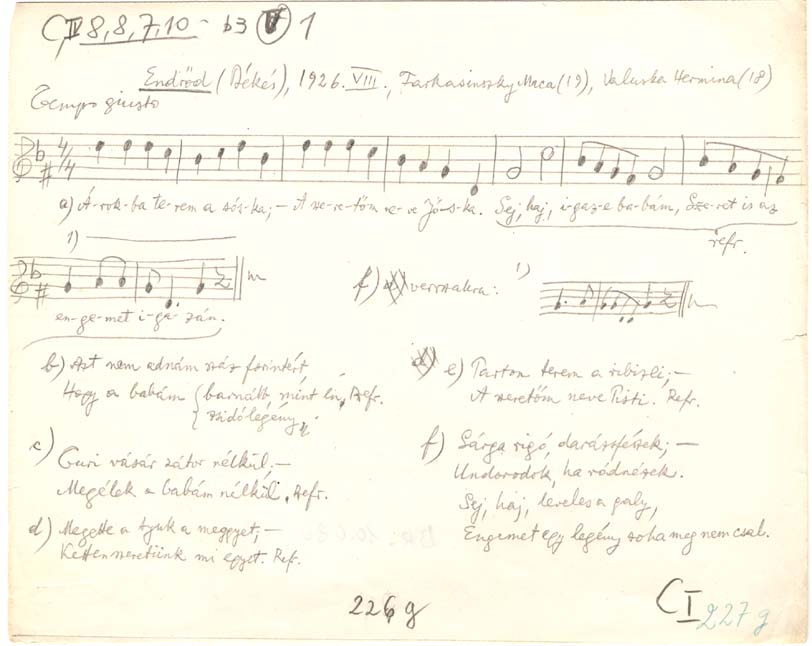 C IV 8,8,7,10 - b3 V 1
Endrőd (Békés), 1926. VIII., Farkasinszky Maca (19), Valuska Hermina (18)
Tempo giusto
4/4
a) Á-rok-ba te-rem a sós-ka; — A sze-re-tőm ne-ve Jó-s-ka. Sej, haj, i-gaz-e ba-bám, Sze-ret is az
refr.
1)
en-ge-met i-ga-zán.
f) versszakra: 1)
b) Azt nem adnám száz forintért,
Hogy a babám { barnább, mint én, Refr.
{ zsidólegény
c) Guri vásár sátor nélkül; —
Megélek a babám nélkül. Refr.
d) Megette a tyuk a meggyet; —
Ketten szeretünk mi egyet. Ref.
e) Parton terem a ribizli; —
A szeretőm neve Pisti. Refr.
f) Sárga rigó, darázsfészek; —
Undorodok, ha rádnézek.
Sej, haj, leveles a galy,
Engemet egy legény soha meg nem csal.
226 g
C I 227 g